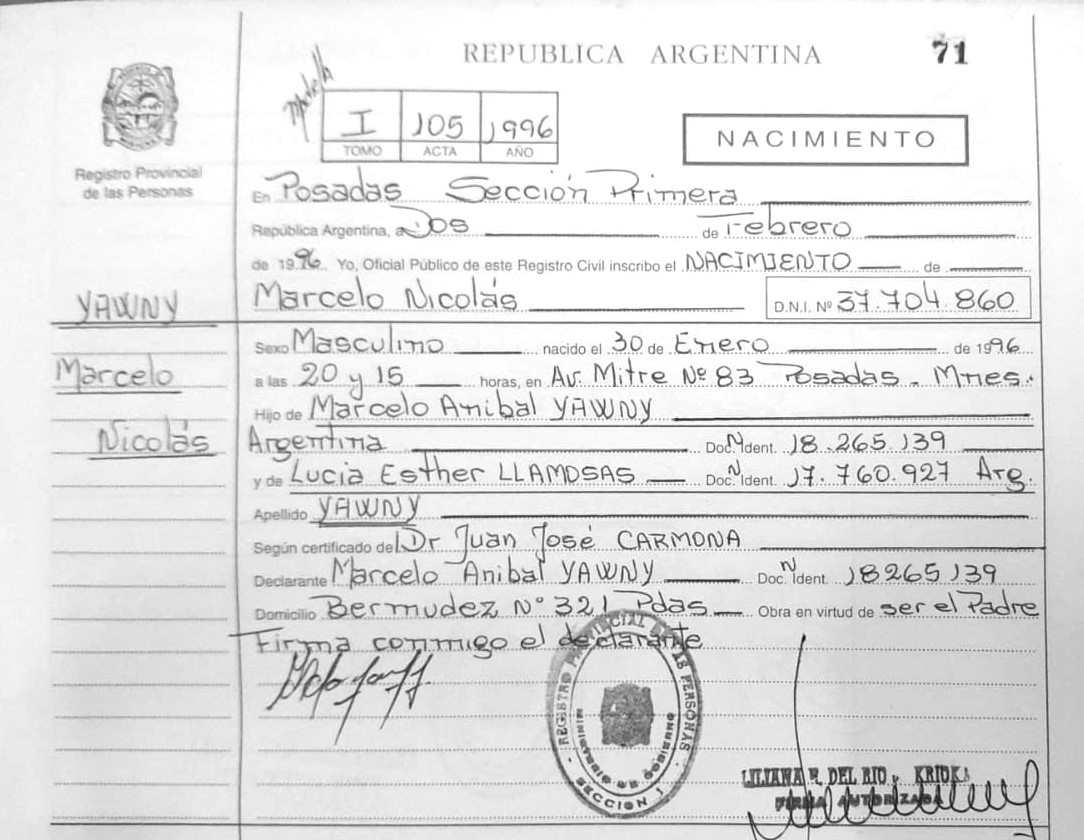 REPUBLICA ARGENTINA 71
I 105 1996
TOMO ACTA AÑO
NACIMIENTO
Registro Provincial
de las Personas
En Posadas Sección Primera
República Argentina, a Dos de Febrero
de 1996 Yo, Oficial Público de este Registro Civil inscribo el NACIMIENTO de
YAWNY
Marcelo Nicolás D.N.I. Nº 37.704.860
Sexo Masculino nacido el 30 de Enero de 1996
Marcelo
a las 20 y 15 horas, en Av. Mitre Nº 83 Posadas - Mnes.
Hijo de Marcelo Anibal YAWNY
Nicolás
Argentina Doc. N Ident. 18.265.139
y de Lucia Esther LLAMOSAS Doc. N Ident. 17.760.927 Arg.
Apellido YAWNY
Según certificado del Dr Juan José CARMONA
Declarante Marcelo Anibal YAWNY Doc. N Ident. 18265139
Domicilio Bermudez N° 321 Pdas Obra en virtud de ser el Padre
Firma conmigo el declarante
REGISTRO PROVINCIAL DE LAS PERSONAS
MINISTERIO DE GOBIERNO
SECCION 1
LILIANA R. DEL RIO
FIRMA AUTORIZADA